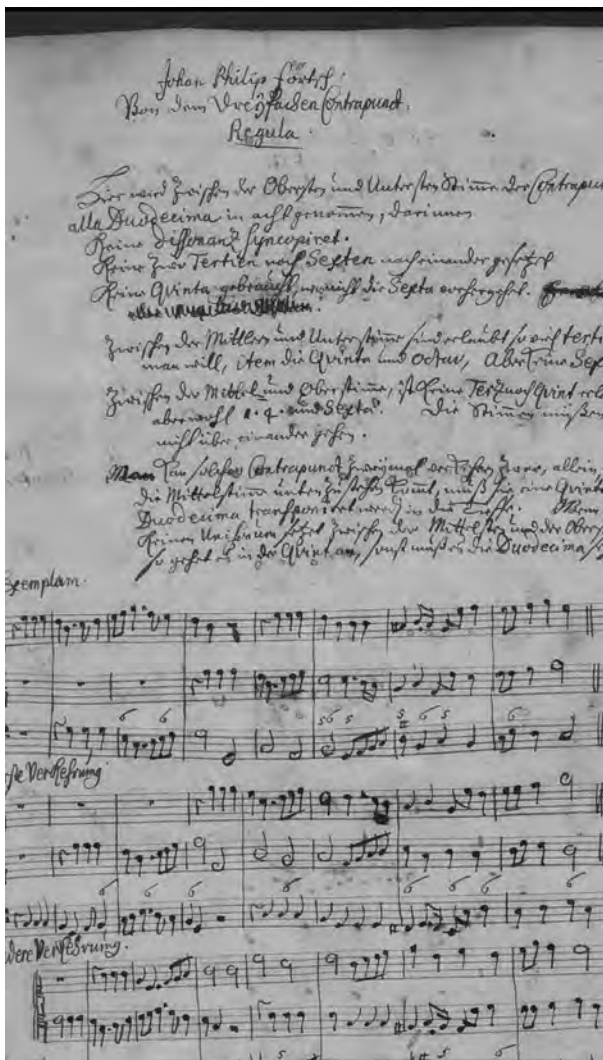 Johan Philip Förtsch.
Von dem Dreyfachen Contrapunct.
Regula.
Hier wird zwischen der Obersten und Untersten Stimme der Contrapun
alla Duodecima in acht genommen, darinnen
Keine Dissonanz Syncopiret.
Keine zwo Tertien noch Sexten nach einander gesetzet
Keine Qvinta gebraucht, wo nicht die Sexta vorhergehet.
Zwischen der Mittlern und Unterstimme sind erlaubt so viel terti
man will, item die Qvinta und octav, aber keine Sex
Zwischen der Mittel und Oberstimme, ist keine Terz noch Qvint erl
aber wohl 8. 4. und Sexta. Die Stimmen müßen
nicht über einander gehen.
Man kan solchen Contrapunct zweymahl verkehren zwar, allein
die Mittelstimme unten zu stehen kommt, muß sie eine Qvinta
Duodecima transponiret werden in die
Keinen Unisonum setzet zwischen der Mittelsten und der Obers
so gehet es in der Qvint an, sonst muß es die Duodecima s
Exemplum.
6 6 56 5 5 6 5 6
ste Verkehrung
6 6 6 6 6 6 6 6
dere Verkehrung.